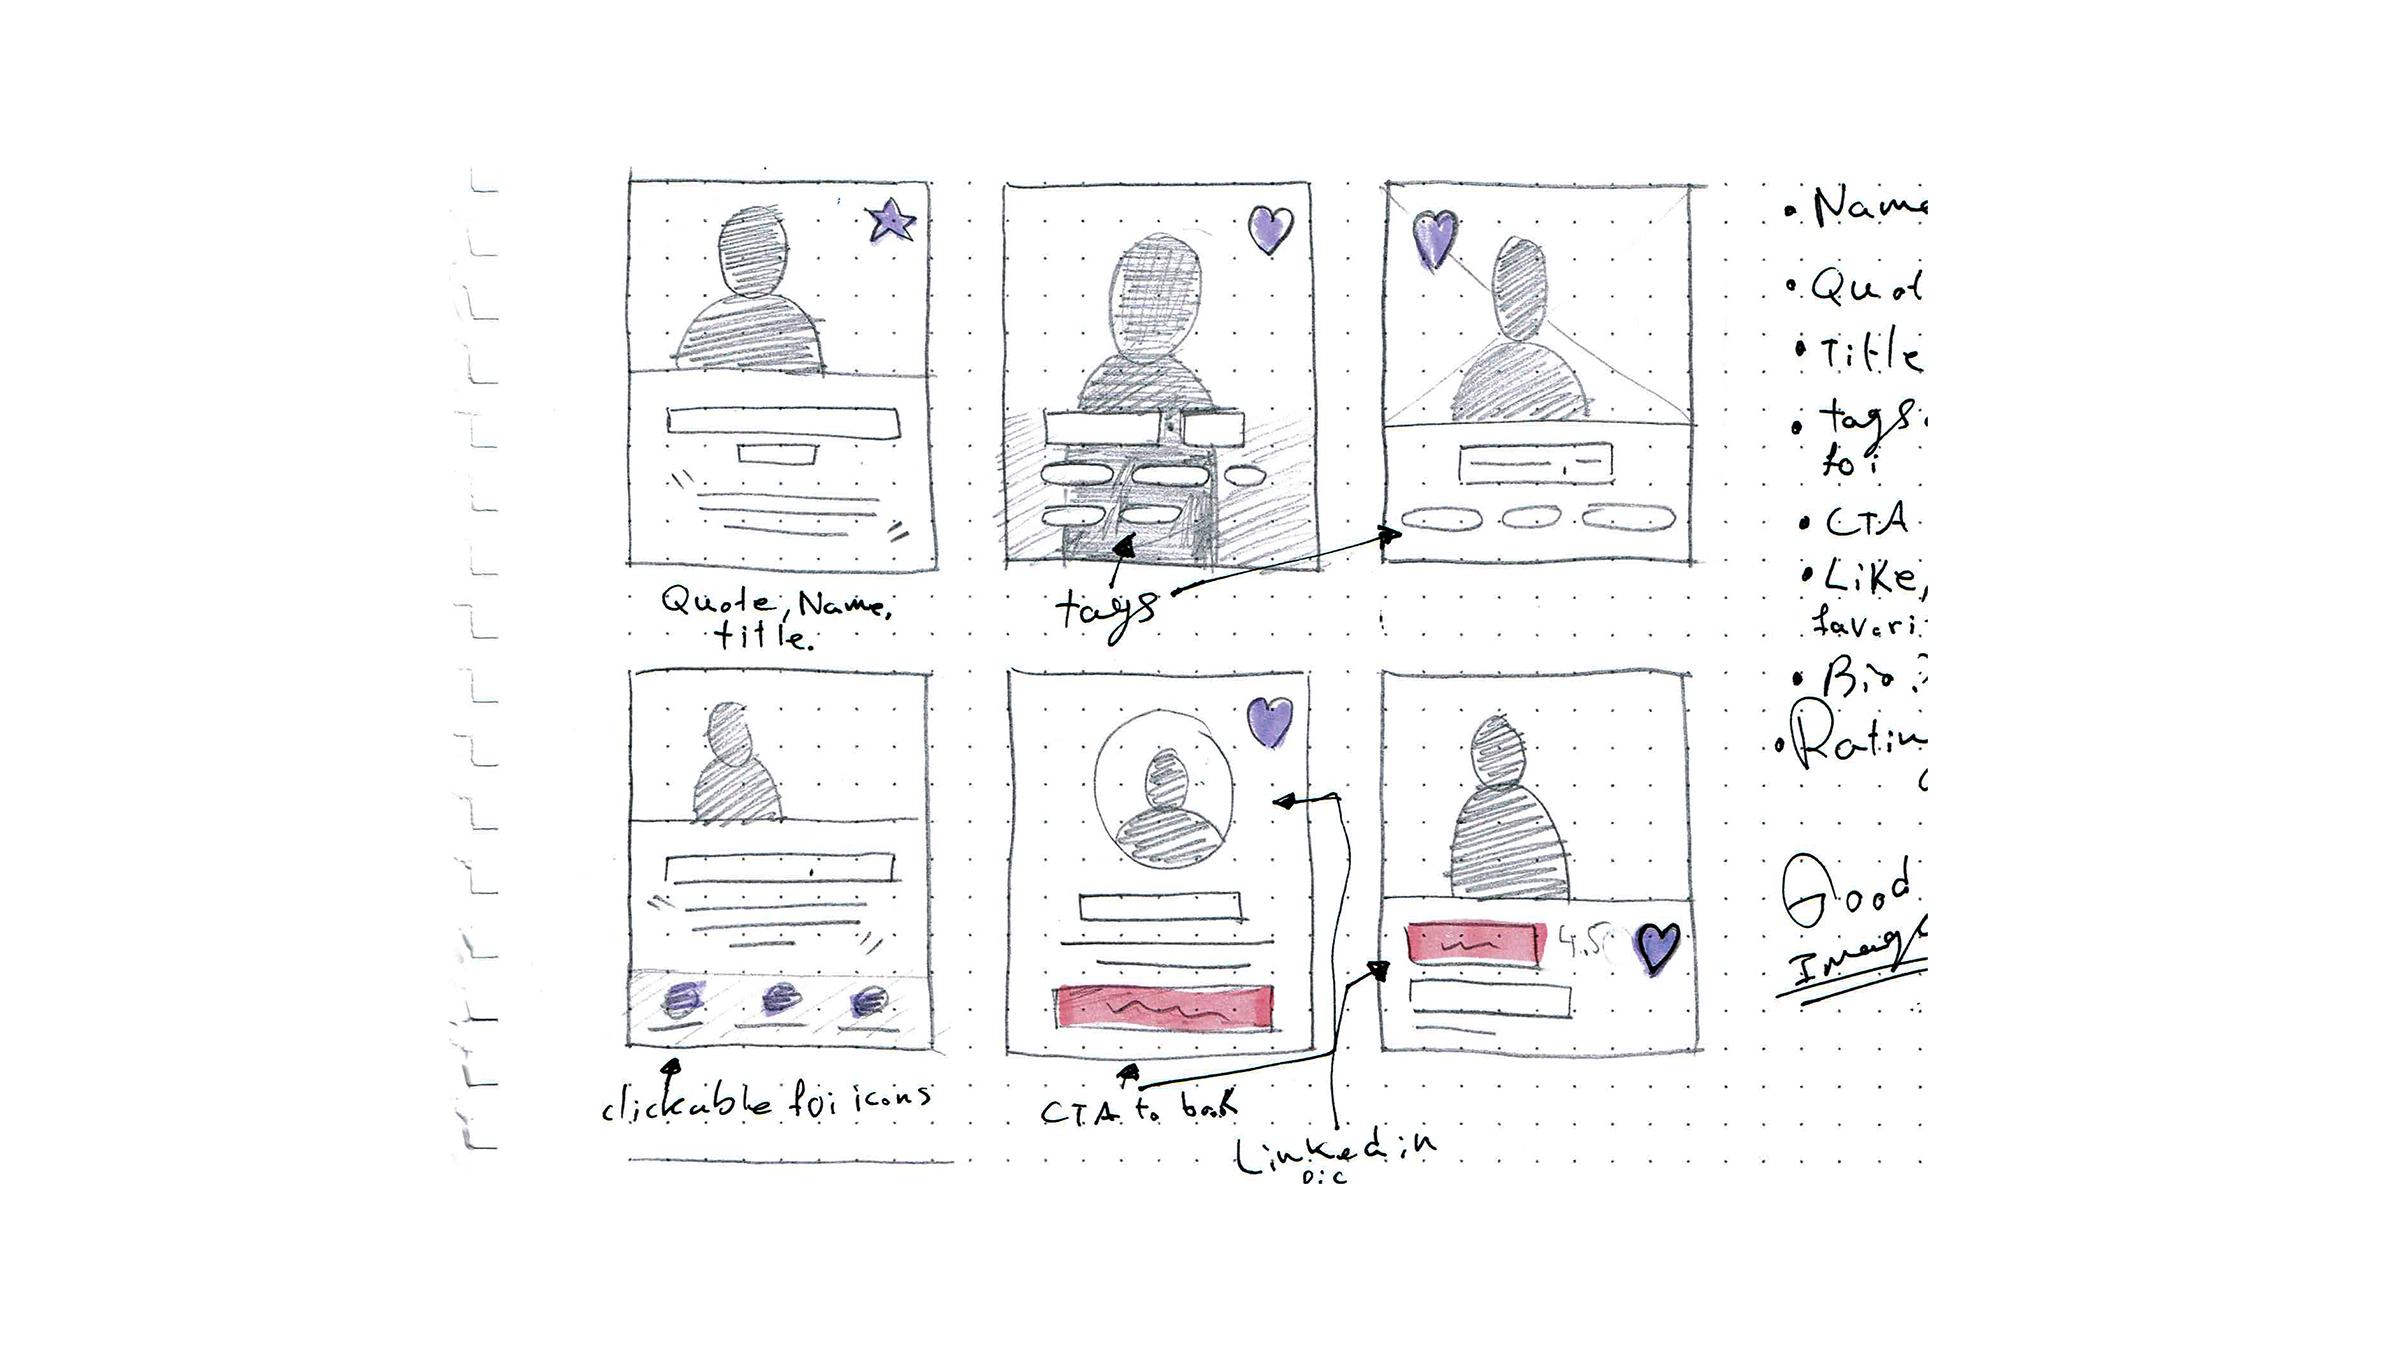 Quote, Name,
title.
tags
clickable foi icons
CTA to book
Linkedin
pic
4.5
• Name
• Quot
• Title
• tags
foi
• CTA
• Like,
favori
• Bio ?
• Ratin
Good
Imag